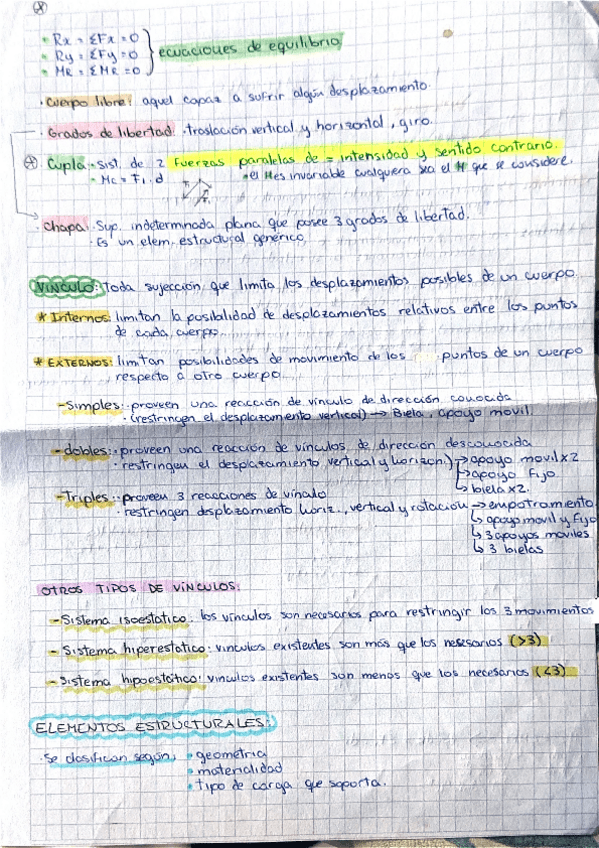 • Rx = ΣFx = 0
• Ry = ΣFy = 0 } ecuaciones de equilibrio
• MR = ΣMR = 0
• Cuerpo libre: aquel capaz a sufrir algún desplazamiento.
• Grados de libertad: traslación vertical y horizontal, giro.
Cupla: • Sist. de 2 fuerzas paralelas de = intensidad y sentido contrario.
• Mc = F1 . d • el M es invariable cualquiera sea el M que se considere.
• Chapa: • Sup. indeterminada plana que posee 3 grados de libertad.
• Es un elem. estructural genérico
VINCULO: Toda sujección que limita los desplazamientos posibles de un cuerpo.
* Internos: limitan la posibilidad de desplazamientos relativos entre los puntos
de cada cuerpo.
* EXTERNOS: limitan posibilidades de movimiento de los puntos de un cuerpo
respecto a otro cuerpo.
- Simples: • proveen una reacción de vínculo de dirección conocida
• (restringen el desplazamiento vertical) → Biela, apoyo movil.
- dobles: • proveen una reacción de vínculos de dirección desconocida
• restringen el desplazamiento vertical y horizon.) → apoyo movil x2
↳ apoyo fijo
↳ biela x2.
- Triples: • proveen 3 reacciones de vínculo
• restringen desplazamiento horiz., vertical y rotación → empotramiento
↳ apoyo movil y fijo
↳ 3 apoyos moviles
↳ 3 bielas
OTROS TIPOS DE VÍNCULOS:
- Sistema isoestatico: los vínculos son necesarios para restringir los 3 movimientos
- Sistema hiperestatico: vinculos existentes son más que los necesarios (>3)
- Sistema hipoestático: vinculos existentes son menos que los necesarios (<3)
ELEMENTOS ESTRUCTURALES:
• Se clasifican según: • geometria
• materialidad
• tipo de carga que soporta.